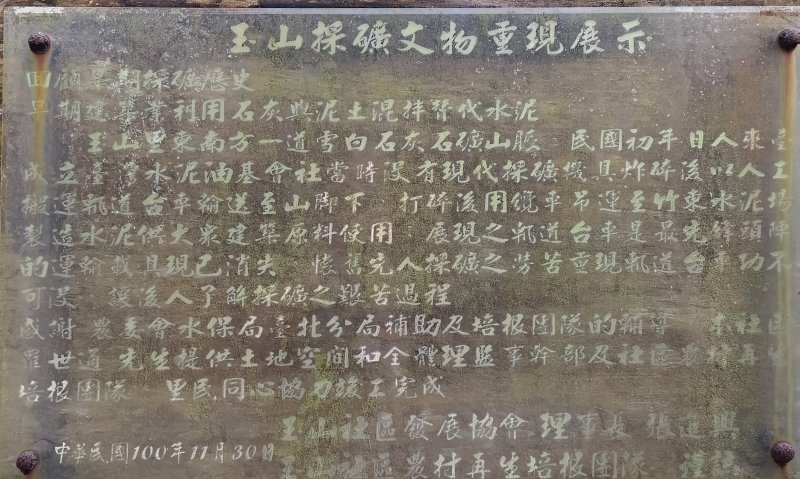 玉山採礦文物重現展示
回顧早期採礦歷史
早期建築業利用石灰與泥土混拌替代水泥
玉山里東南方一道雪白石灰石礦山脈 民國初年日人來臺
成立臺灣水泥油基會社當時沒有現代採礦機具炸碎後以人工
搬運軌道台車輸送至山腳下 打碎後用纜車吊運至竹東水泥場
製造水泥供大衆建築原料使用 展現之軌道台車是最先鋒頭陣
的運輸載具現已消失 懷舊先人採礦之勞苦重現軌道台車功不
可沒 讓後人了解採礦之艱苦過程
感謝 農委會水保局臺北分局補助及培根團隊的輔導 本社區
羅世通 先生提供土地空間和全體理監事幹部及社區農村再生
培根團隊 里民,同心協力竣工完成
玉山社區發展協會 理事長 張進興
玉山社區農村再生培根團隊 謹誌
中華民國100年11月30日